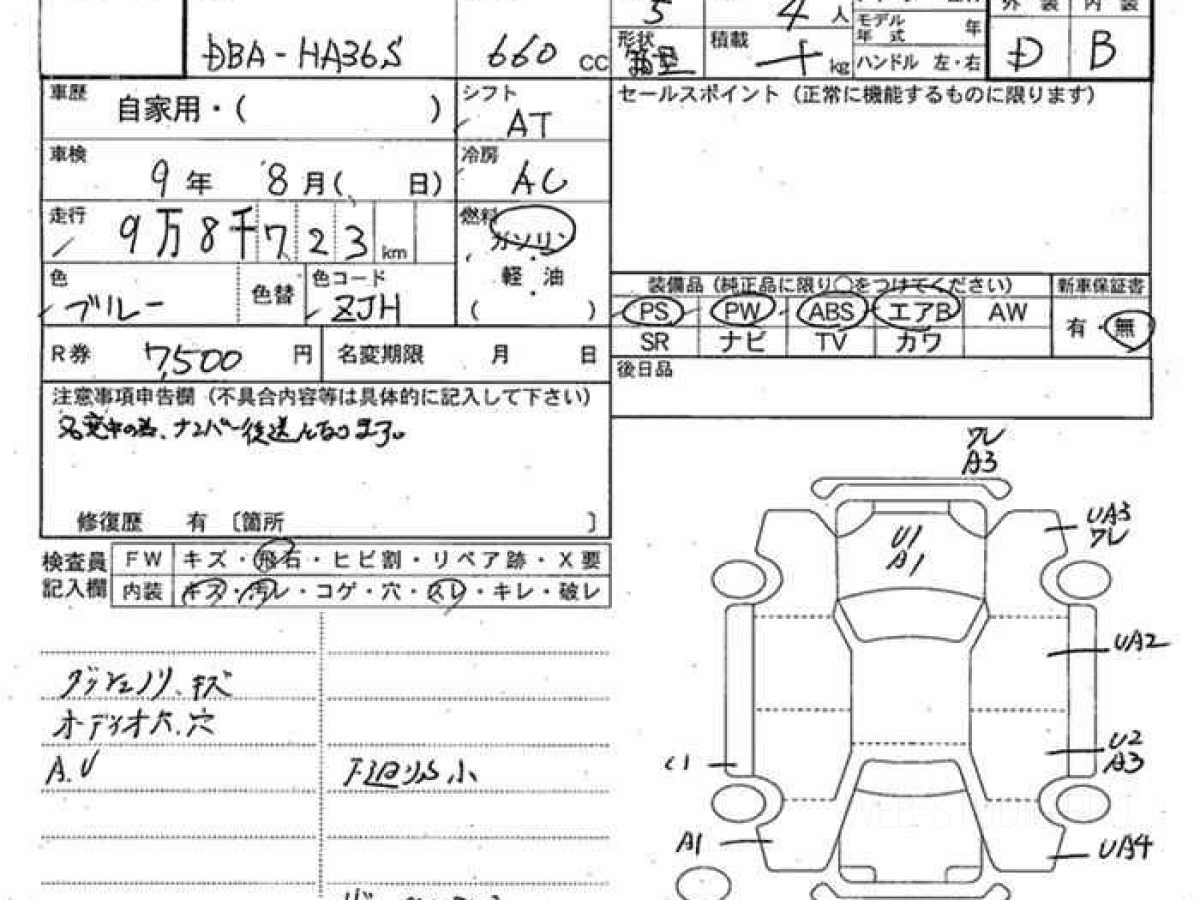 DBA-HA36S 660 CC
5 4 人
モデル
年式 年
形状 箱型 積載 kg
ハンドル 左・右
外装 内装
D B
車歴 自家用・( )
シフト AT
セールスポイント（正常に機能するものに限ります）
車検 9 年 8 月( 日)
冷房 AC
走行 9万8千723 km
燃料 ガソリン
軽・油
( )
色 ブルー 色替 色コード ZJH
装備品（純正品に限り○をつけてください） 新車保証書
PS PW ABS エアB AW 有・無
SR ナビ TV カワ
R券 7,500 円 名変期限 月 日
後日品
注意事項申告欄（不具合内容等は具体的に記入して下さい）
名変中の為、ナンバー後送となります。
修復歴 有 〔箇所 〕
検査員 FW キズ・飛石・ヒビ割・リペア跡・X要
記入欄 内装 キズ・汚レ・コゲ・穴・スレ・キレ・破レ
キズ
オーディオ穴
A.U
小
ワレ
A3
U1
A1
UA3
ワレ
UA2
U2
A3
A1
UA4